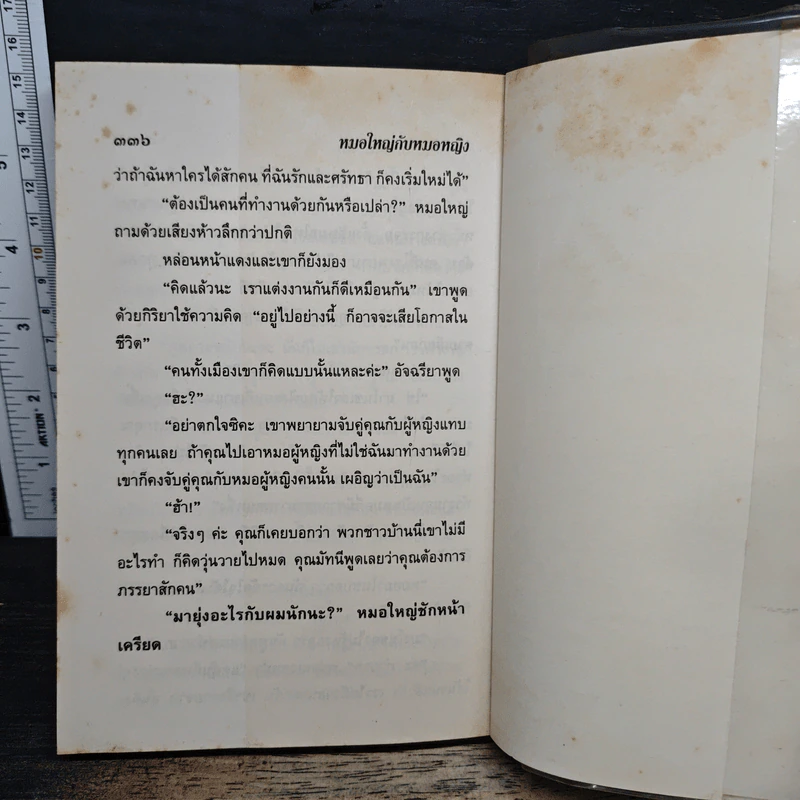 ๓๓๖ หมอใหญ่กับหมอหญิง
ว่าถ้าฉันหาใครได้สักคน ที่ฉันรักและศรัทธา ก็คงเริ่มใหม่ได้”
“ต้องเป็นคนที่ทำงานด้วยกันหรือเปล่า?” หมอใหญ่
ถามด้วยเสียงห้าวลึกกว่าปกติ
หล่อนหน้าแดงและเขาก็ยังมอง
“คิดแล้วนะ เราแต่งงานกันก็ดีเหมือนกัน” เขาพูด
ด้วยกิริยาใช้ความคิด “อยู่ไปอย่างนี้ ก็อาจจะเสียโอกาสใน
ชีวิต”
“คนทั้งเมืองเขาก็คิดแบบนั้นแหละค่ะ” อัจฉรียาพูด
“ฮะ?”
“อย่าตกใจซิคะ เขาพยายามจับคู่คุณกับผู้หญิงแทบ
ทุกคนเลย ถ้าคุณไปเอาหมอผู้หญิงที่ไม่ใช่ฉันมาทำงานด้วย
เขาก็คงจับคู่คุณกับหมอผู้หญิงคนนั้น เผอิญว่าเป็นฉัน”
“ฮ้า!”
“จริงๆ ค่ะ คุณก็เคยบอกว่า พวกชาวบ้านนี่เขาไม่มี
อะไรทำ ก็คิดวุ่นวายไปหมด คุณมัทนีพูดเลยว่าคุณต้องการ
ภรรยาสักคน”
“มายุ่งอะไรกับผมนักนะ?” หมอใหญ่ชักหน้า
เครียด
17
16
15
14
13
12
11
10
9
8
7
6
5
4
3
2
1
5
4
3
2
1
AKTION
inches